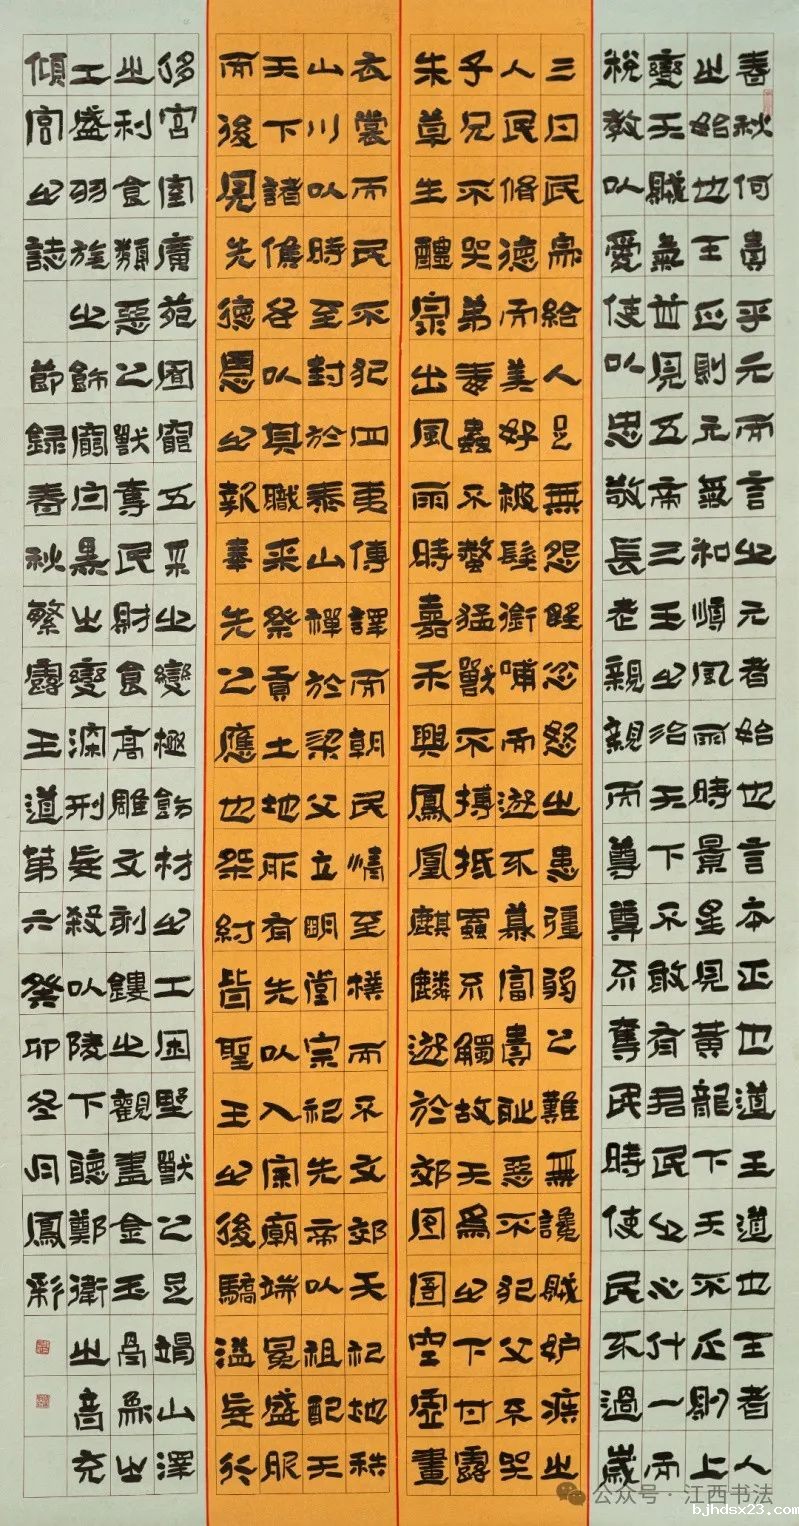 春秋何貴乎元而言之元者始也言本正也道王道也王者人
之始也王正則元氣和順風雨時景星見黃龍下天不正則上
變天賊氣並見五帝三王之治天下不敢有君民之心什一而
稅教以愛使以忠敬長老親親而尊尊不奪民時使民不過歲
三日民家給人足無怨望忿怒之患彊弱之難無讒賊妒疾之
人民脩德而美好被髮銜哺而遊不慕富貴恥惡不犯父不哭
子兄不哭弟毒蟲不螫猛獸不搏抵蟲不觸故天為之下甘露
朱草生醴泉出風雨時嘉禾興鳳凰麒麟遊於郊囹圄空虛畫
衣裳而民不犯四夷傳譯而朝民情至樸而不文郊天祀地秩
山川以時至封於泰山禪於梁父立明堂宗祀先帝以祖配天
天下諸侯各以其職來祭貢土地所有先以入宗廟端冕盛服
而後見先德恩之報奉先之應也桀紂皆聖王之後驕溢妄行
侈宮室廣苑囿窮五采之變極飾材之工困野獸之足竭山澤
之利食類惡之獸奪民財食高雕文刻鏤之觀盡金玉骨象之
工盛羽旄之飾窮白黑之變深刑妄殺以陵下聽鄭衛之音充
傾宮之誌 節錄春秋繁露王道第六癸卯冬月鳳彩
公众号·江西书法
bjhdsx23.com